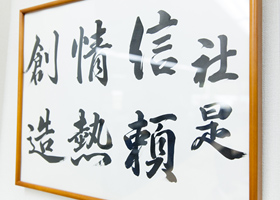 社是
信頼
情熱
創造